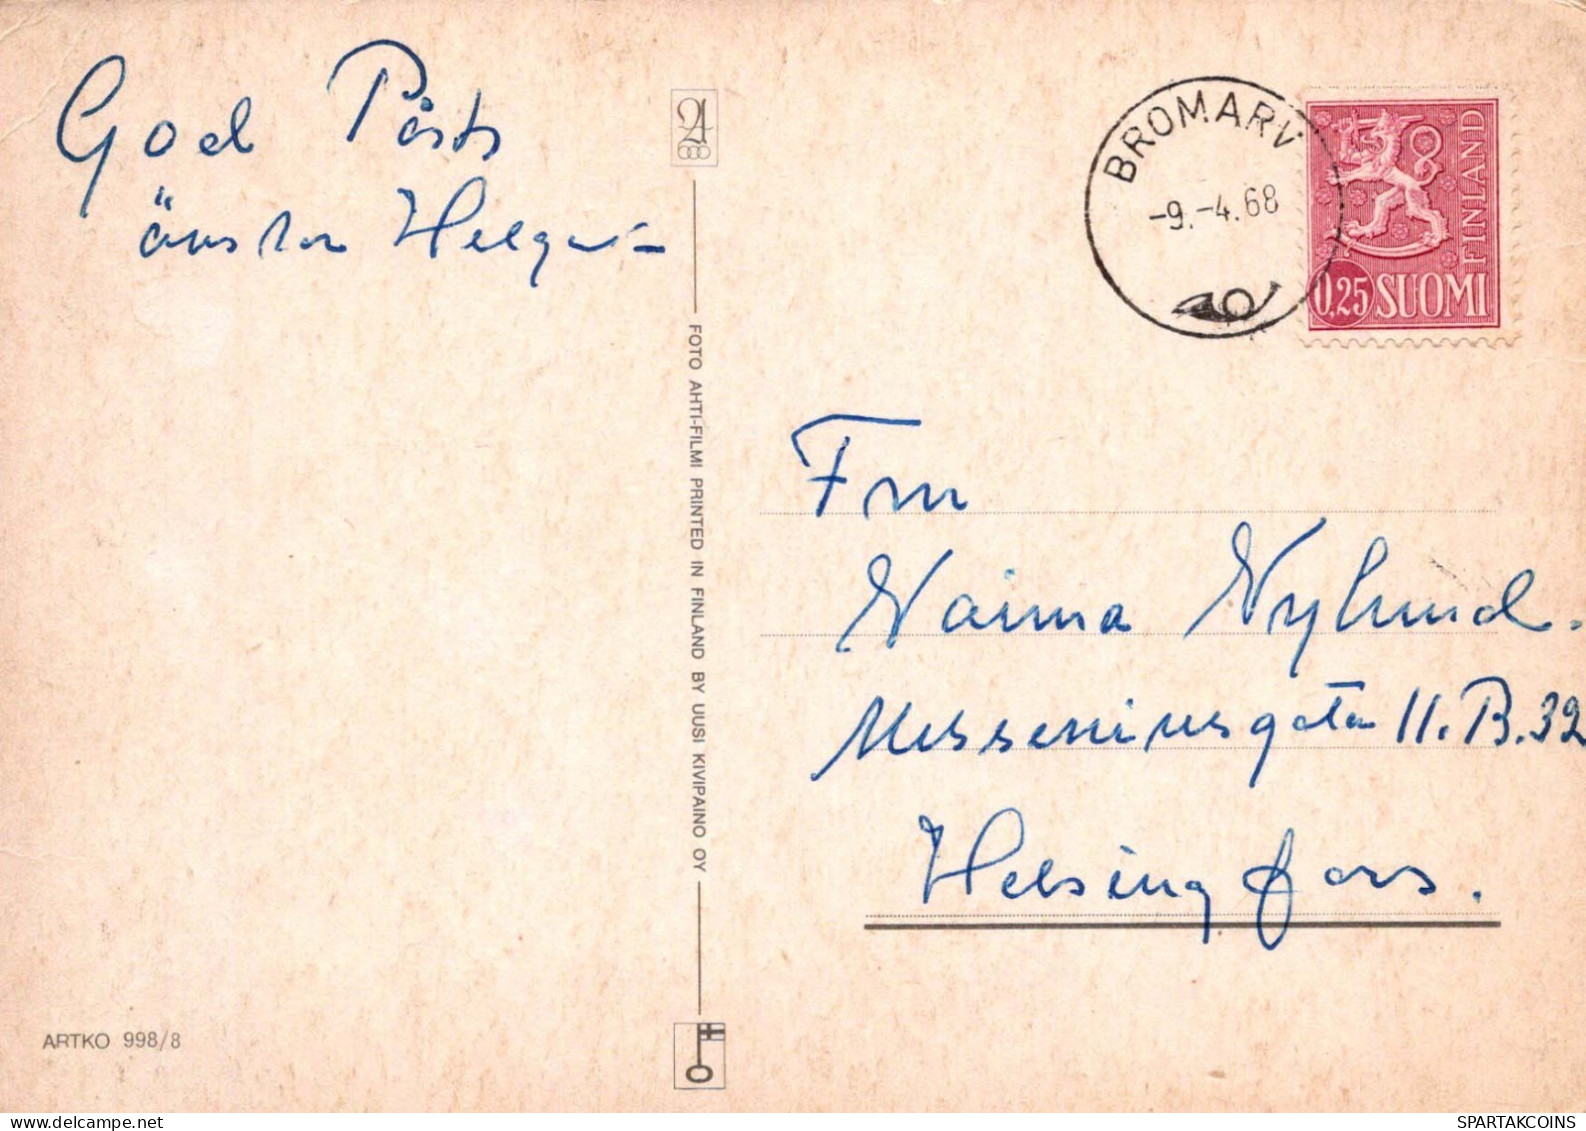 God Påsk
önskar Helga
BROMARV
-9.-4.68
FINLAND
0,25 SUOMI
FOTO AHTI-FILMI PRINTED IN FINLAND BY UUSI KIVIPAINO OY
Fru
Naima Nylund.
Musseniusgatan 11.B.32
Helsingfors.
ARTKO 998/8
SPARTAKCOINS